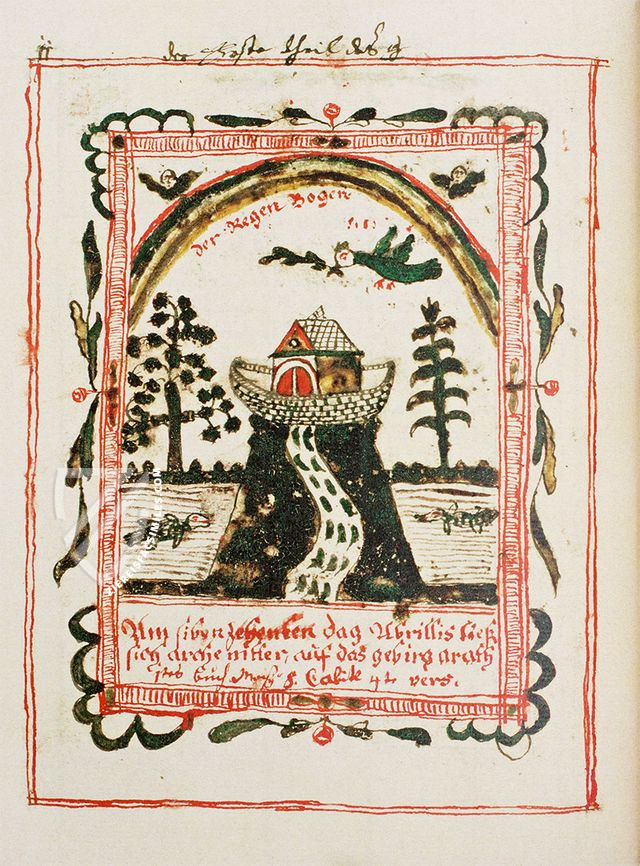 der Erste theil deß
der Regen Bogen
Am sibenzehenten dag Abrillis ließ
sich arche niller, auf das gebirg arath
buch Moiß: 8. Cabitl 4t vers.